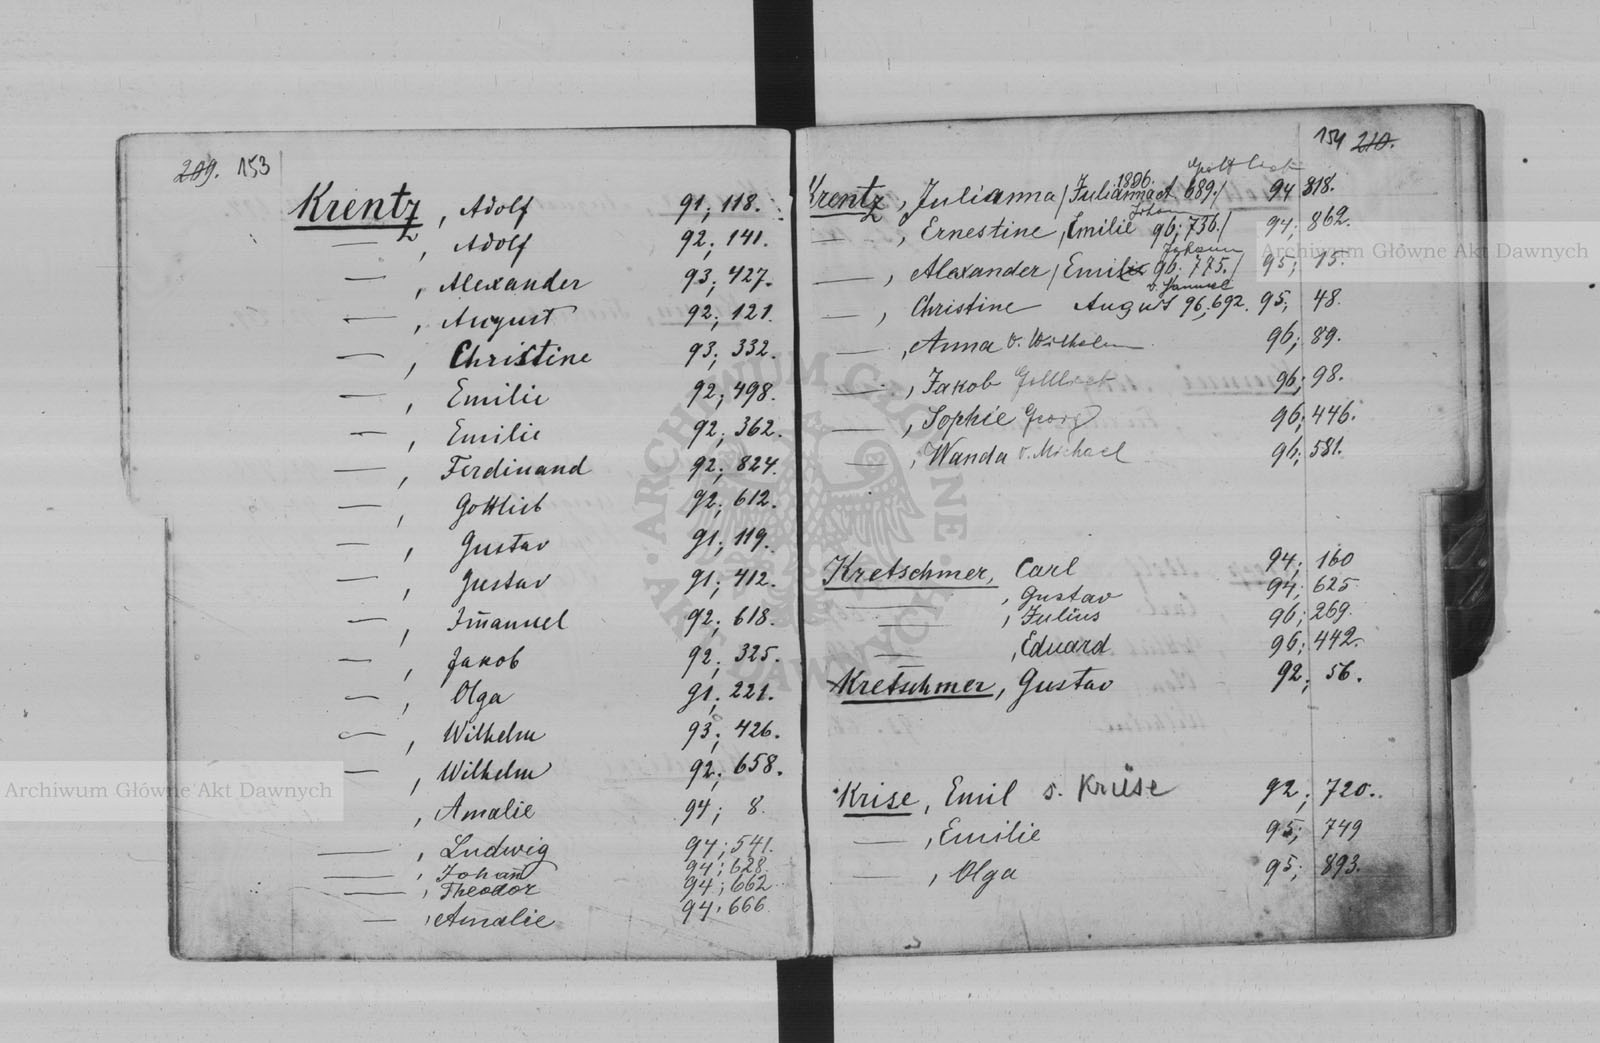 209. 153
Krentz, Adolf 91; 118.
— , Adolf 92; 141.
— , Alexander 93; 427.
— , August 92; 121.
— , Christine 93; 332.
— , Emilie 92; 498.
— , Emilie 92; 362.
— , Ferdinand 92; 824.
— , Gottlieb 92; 612.
— , Gustav 91; 119.
— , Gustav 91; 412.
— , Im̄anuel 92; 618.
— , Jakob 92; 325.
— , Olga 91; 221.
— , Wilhelm 93; 426.
— , Wilhelm 92; 658.
, Amalie 94; 8.
— , Ludwig 94; 541.
— , Johann 94; 628.
— , Theodor 94; 662
— , Amalie 94; 666.
154 210.
Gottlieb
1896.
Krentz, Julianna / 689. / 94 818.
Johann
— , Ernestine, Emilie 96; 736. / 94; 862.
Johann
— , Alexander / Emil 96; 775. / 95; 15.
v. Samuel
— , Christine August 96; 692. 95; 48.
— , Anna v. Wilhelm 96; 89.
— , Jakob Gottlieb 96; 98.
— , Sophie Georg 96; 446.
— , Wanda v. Michael 96; 581.
Kretschmer, Carl 94; 160
— , Gustav 94; 625
— , Julius 96; 269.
— , Eduard 96; 442.
Kretschmer, Gustav 92; 56.
Krise, Emil s. Krüse 92; 720.
— , Emilie 95; 749
— , Olga 95; 893.
Archiwum Główne Akt Dawnych
Archiwum Główne Akt Dawnych
ARCHIWUM GŁÓWNE AKT DAWNYCH